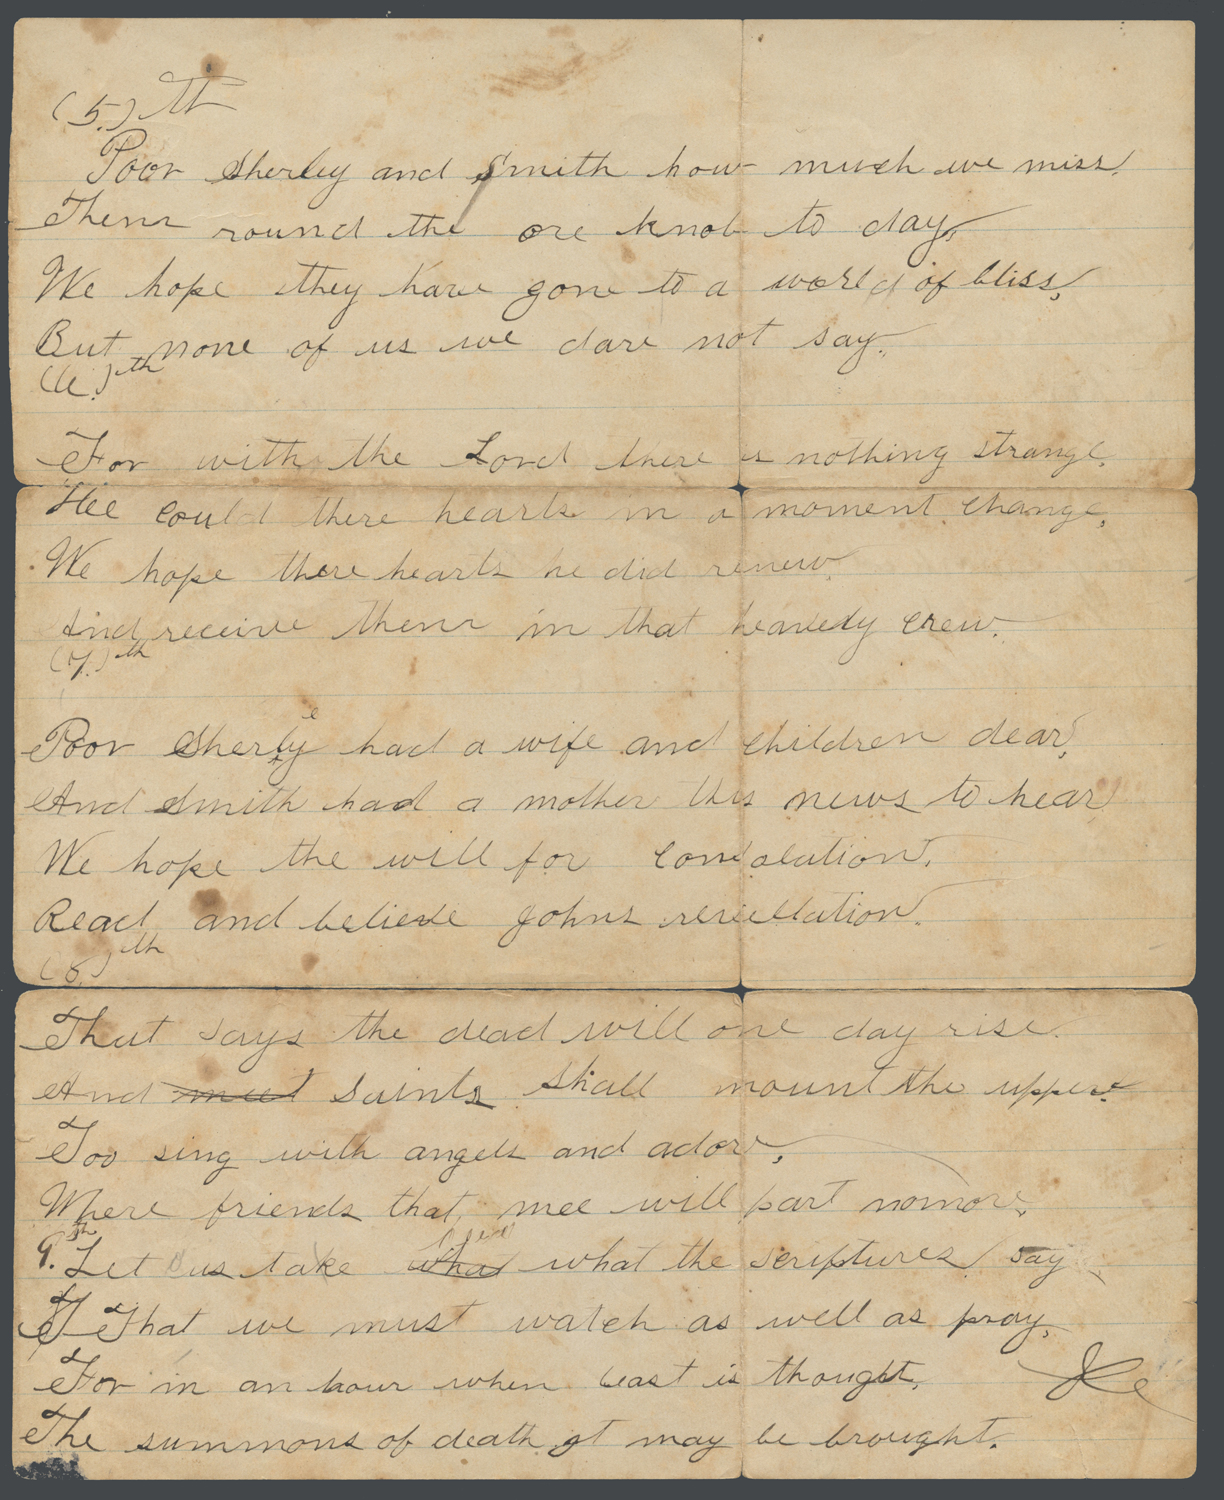 (5.)th
Poor Sherley and Smith how much we miss.
Them round the ore knob to day,
We hope they have gone to a world of bliss,
But none of us we dare not say.
(6.)th
For with the Lord there is nothing strange,
Hee could there hearts in a moment change,
We hope there hearts he did renew.
And receive them in that heavedy crew.
(7.)th
Poor Sherley had a wife and children dear,
And Smith had a mother this news to hear
We hope the will for consolation.
Read and believe Johns revellation.
(8.)th
That says the dead will one day rise.
And meet Saints shall mount the upper.
Too sing with angels and adore,
Where friends that mee will part nomore,
9.th Let us take what what the scriptures say
That we must watch as well as pray,
For in an hour when least is thought,
The summons of death it may be brought.